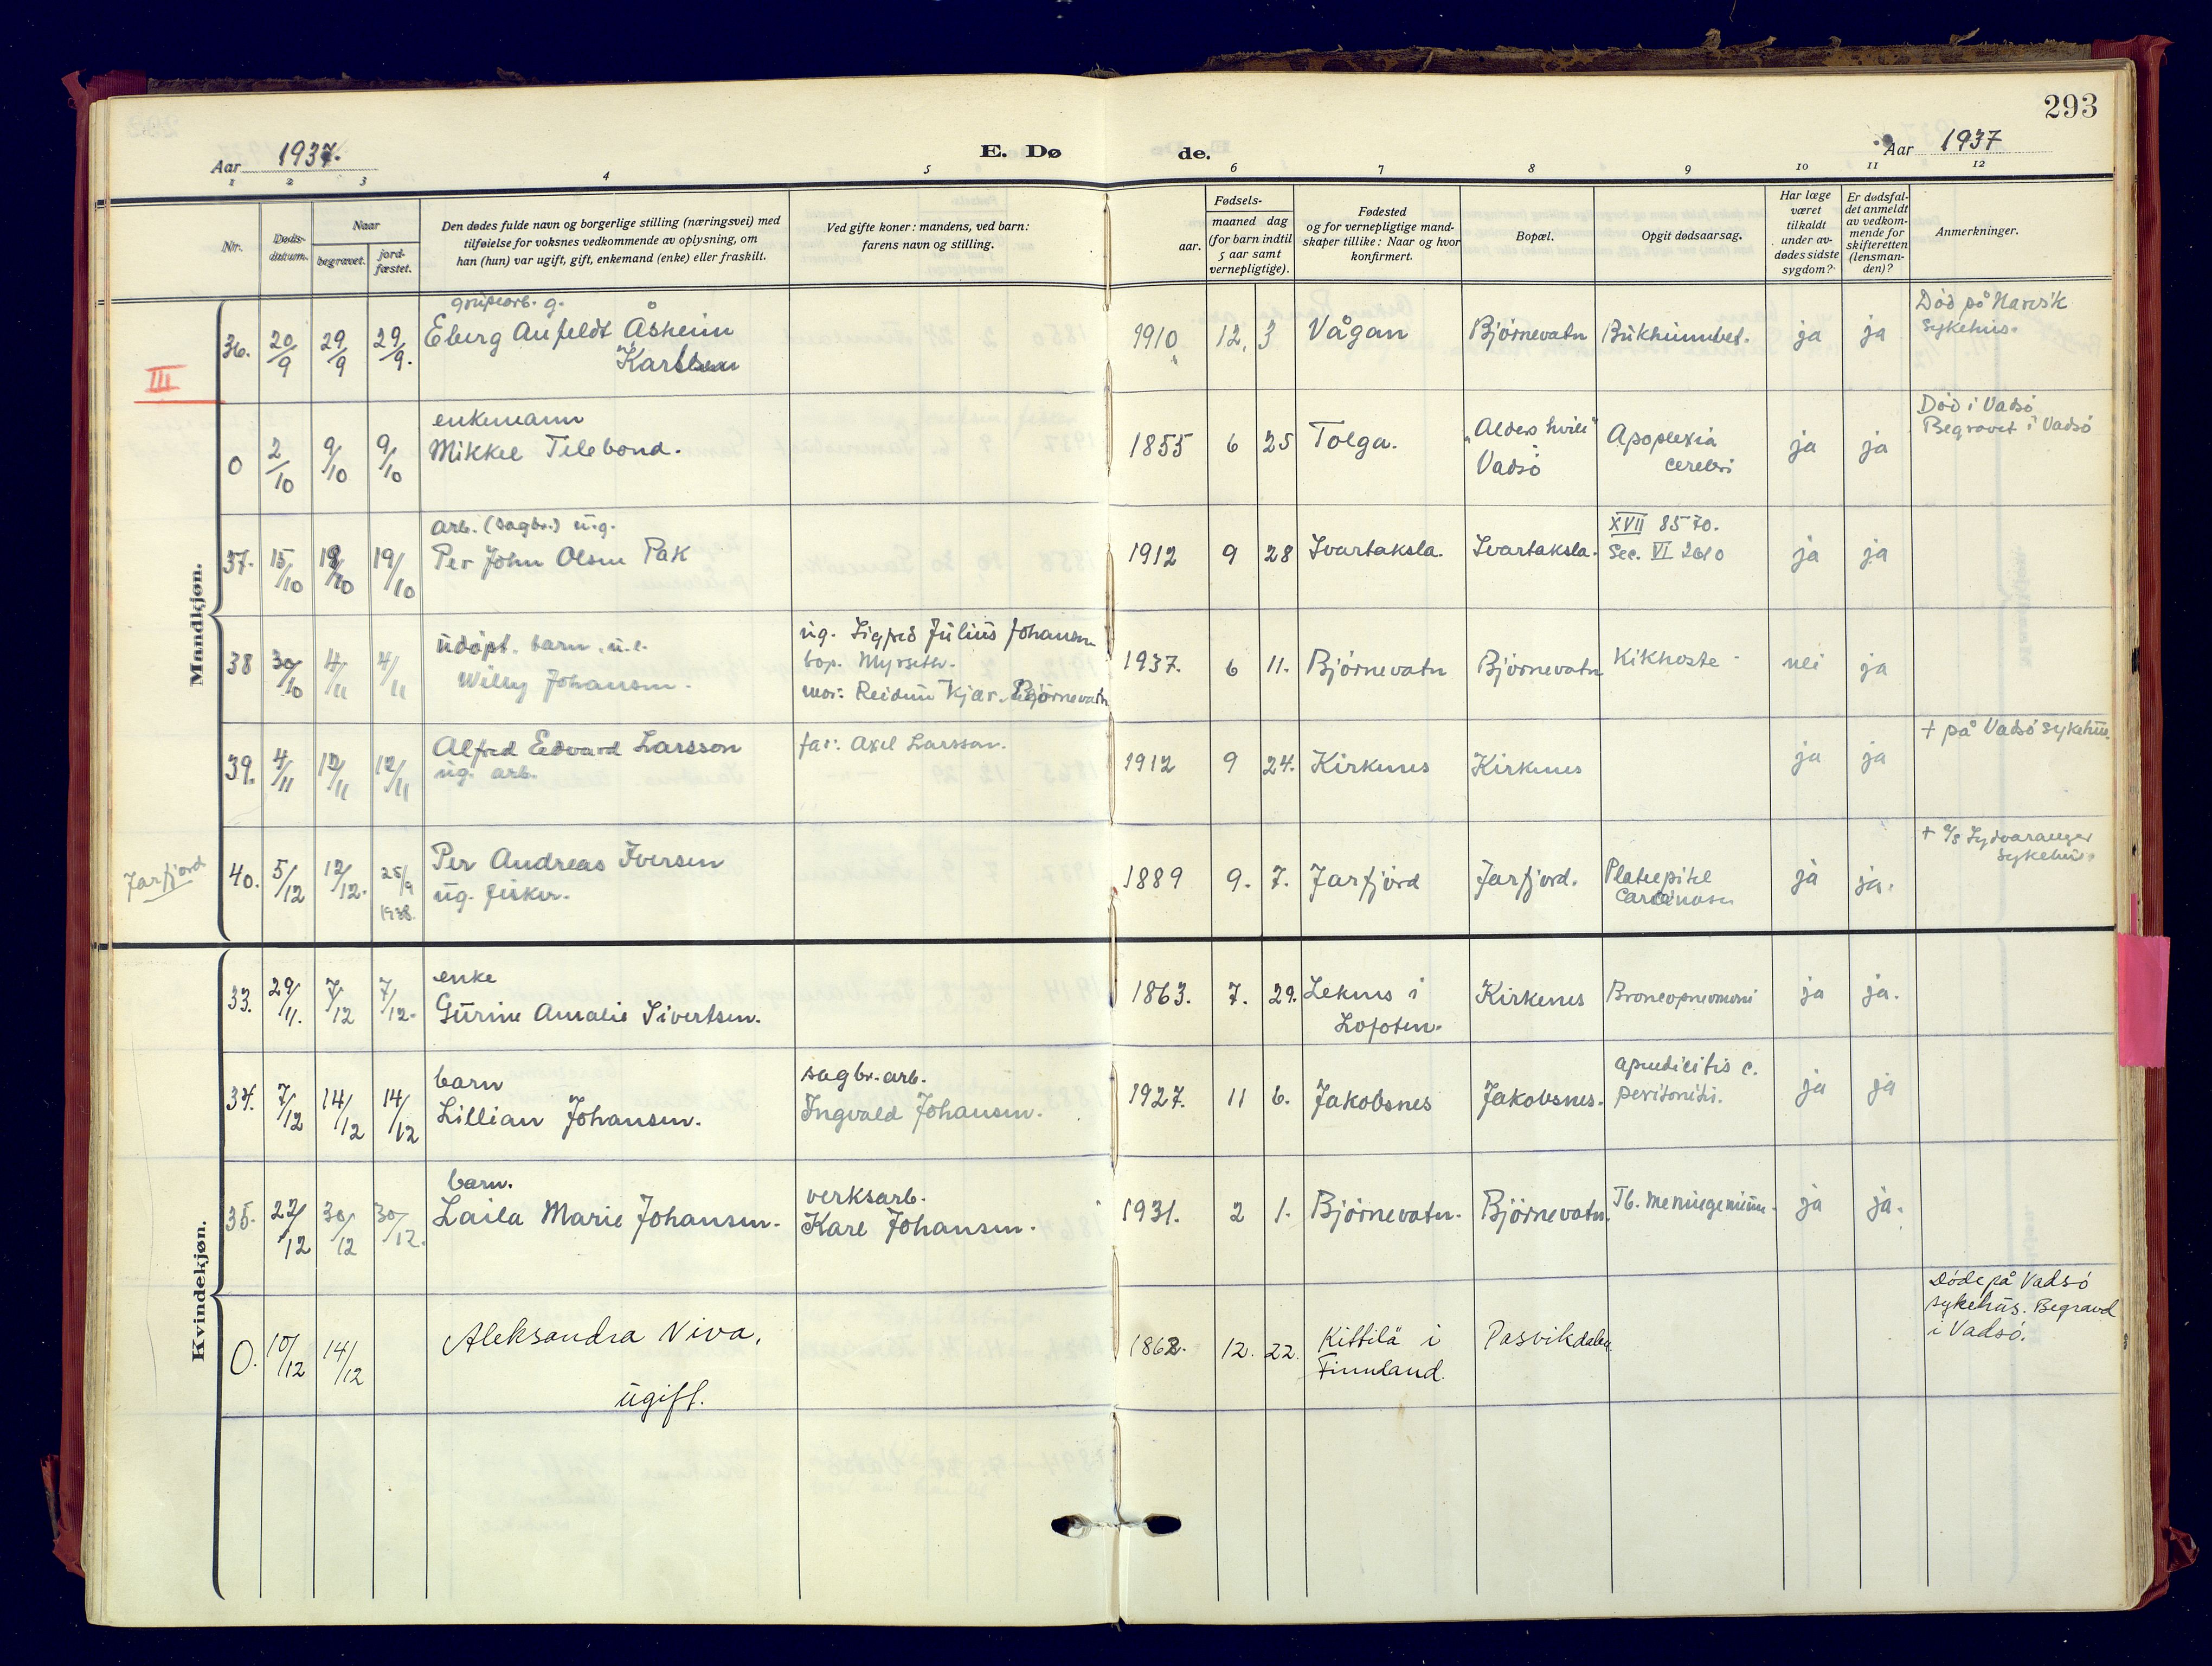 293
Aar 1937.
E. Dø
de.
Aar 1937
1 2 3 4 5 6 7 8 9 10 11 12
Nr.
Døds-
datum.
Naar
begravet.
jord-
fæstet.
Den dødes fulde navn og borgerlige stilling (næringsvei) med
tilføielse for voksnes vedkommende av oplysning, om
han (hun) var ugift, gift, enkemand (enke) eller fraskilt.
Ved gifte koner: mandens, ved barn:
farens navn og stilling.
Fødsels-
aar.
maaned dag
(for barn indtil
5 aar samt
vernepligtige).
Fødested
og for vernepligtige mand-
skaper tillike: Naar og hvor
konfirmert.
Bopæl.
Opgit dødsaarsag.
Har læge
været
tilkaldt
under av-
dødes sidste
sygdom?
Er dødsfal-
det anmeldt
av vedkom-
mende for
skifteretten
(lensman-
den)?
Anmerkninger.
Mandkjøn.
III
36. 20/9 29/9 29/9.
grubearb. g.
Eberg Anfeldt Åsheim
Karlsen
1910 12. 3 Vågan Bjørnevatn Bukhinnebet. ja ja
Død på Narvik
sykehus.
0 2/10 9/10 9/10
enkemann
Mikkel Tilebond.
1855 6 25 Tolga.
"Alders hvile"
Vadsö
Apoplexia
cerebri
ja ja
Död i Vadsö
Begravet i Vadsö
37. 15/10 18/10 19/10
arb. (sagbr.) ug.
Per John Olsen Pak
1912 9 28 Svartaksla. Svartaksla.
XVII 8570.
Sec. VI 2610
ja ja
38 30/10 4/11 4/11
udöpt. barn. u.e.
Willy Johansen.
ug. Sigfred Julius Johansen
bop. Myrseth.
mor: Reidun Kjær. Bjørnevatn
1937. 6 11. Bjørnevatn Bjørnevatn Kikhoste nei ja
39. 4/11 12/11 12/11
Alfred Edvard Larsson
ug. arb.
far: Axel Larsson.
1912 9 24. Kirkenes Kirkenes ja ja
+ på Vadsö sykehus.
Jarfjord
40. 5/12 12/12. 25/9 1938.
Per Andreas Iversen
ug. fisker.
1889 9. 7. Jarfjord Jarfjord.
Plateepitel
Carcinosen
ja ja.
+ A/S Sydvaranger
sykehus
Kvindekjøn.
33. 29/11. 7/12 7/12.
enke
Gurine Amalie Sivertsen.
1863. 7. 29.
Leknes i
Lofoten.
Kirkenes Broncopneumoni ja ja.
34. 7/12 14/12 14/12
barn
Lillian Johansen.
sagbr. arb.
Ingvald Johansen.
1927. 11 6. Jakobsnes Jakobsnes.
apendicitis c.
peritonitis.
ja ja
35. 22/12 30/12 30/12.
barn.
Laila Marie Johansen.
verksarb.
Karl Johansen.
1931. 2 1. Bjørnevatn. Bjørnevatn. Tb. meningeninne. ja ja.
0. 10/12 14/12
Aleksandra Niva.
ugift.
1862. 12. 22.
Kittilä i
Finnland.
Pasvikdalen.
Döde på Vadsö
sykehus. Begravd
i Vadsö.